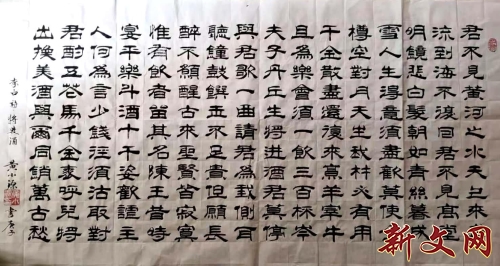 君不見黃河之水天上來
流到海不復回君不見高
明鏡悲白髮朝如青絲暮成
雪人生得意須盡歡莫使
樽空對月天生我材必有用
千金散盡還復來烹羊宰牛
且為樂會須一飲三百杯岑
夫子丹丘生將進酒君莫停
與君歌一曲請君為我側耳
聽鐘鼓饌玉不足貴但願長
醉不願醒古來聖賢皆寂寞
惟有飲者留其名陳王昔時
宴平樂斗酒十千恣歡謔主
人何為言少錢徑須沽取對
君酌五花馬千金裘呼兒將
出換美酒與爾同銷萬古愁
李白詩將進酒
書庚子
新文网